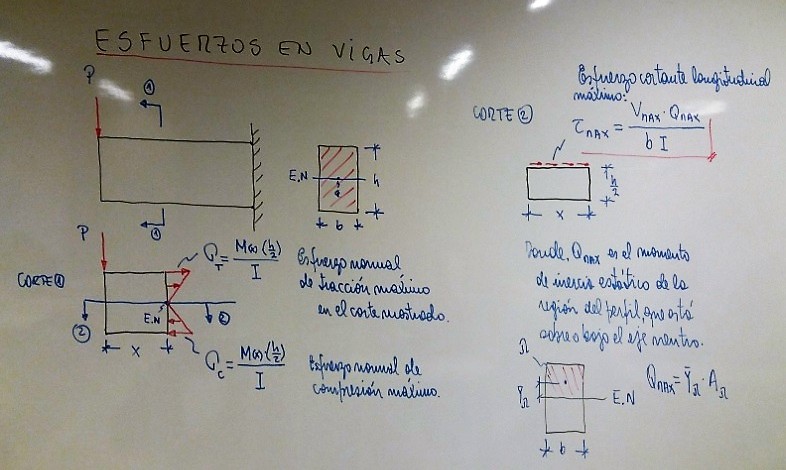 ESFUERZOS EN VIGAS
P
①
①
E.N
h
b
P
CORTE①
②
②
E.N
x
σT = M(x)(h/2) / I
Esfuerzo normal
de tracción máximo
en el corte mostrado.
σC = M(x)(h/2) / I
Esfuerzo normal de
compresión máximo.
CORTE②
Esfuerzo cortante longitudinal
máximo:
τMAX = VMAX · QMAX / b I
h/2
x
Donde, QMAX es el momento
de inercia estático de la
región del perfil, que está
sobre o bajo el eje neutro.
Ω
ȲΩ
E.N
b
QMAX = ȲΩ · AΩ